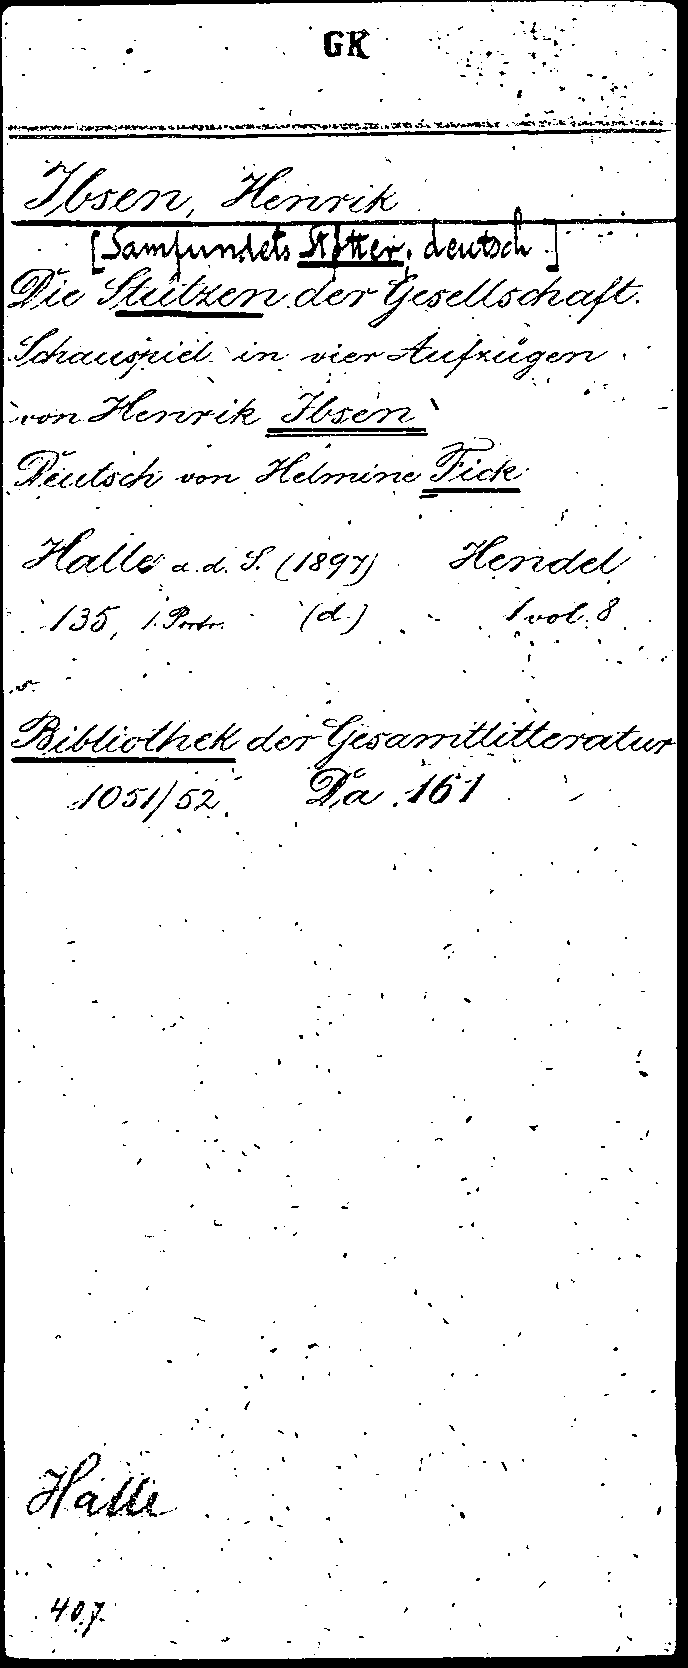 GK
Ibsen, Henrik
[Samfundets Støtter, deutsch.]
Die Stützen der Gesellschaft.
Schauspiel in vier Aufzügen
von Henrik Ibsen
Deutsch von Helmine Fick
Halle a. d. S. (1897) Hendel
135, 1 Portr. (d.) 1 vol. 8
Bibliothek der Gesamtlitteratur
1051/52. Da 161
Halle